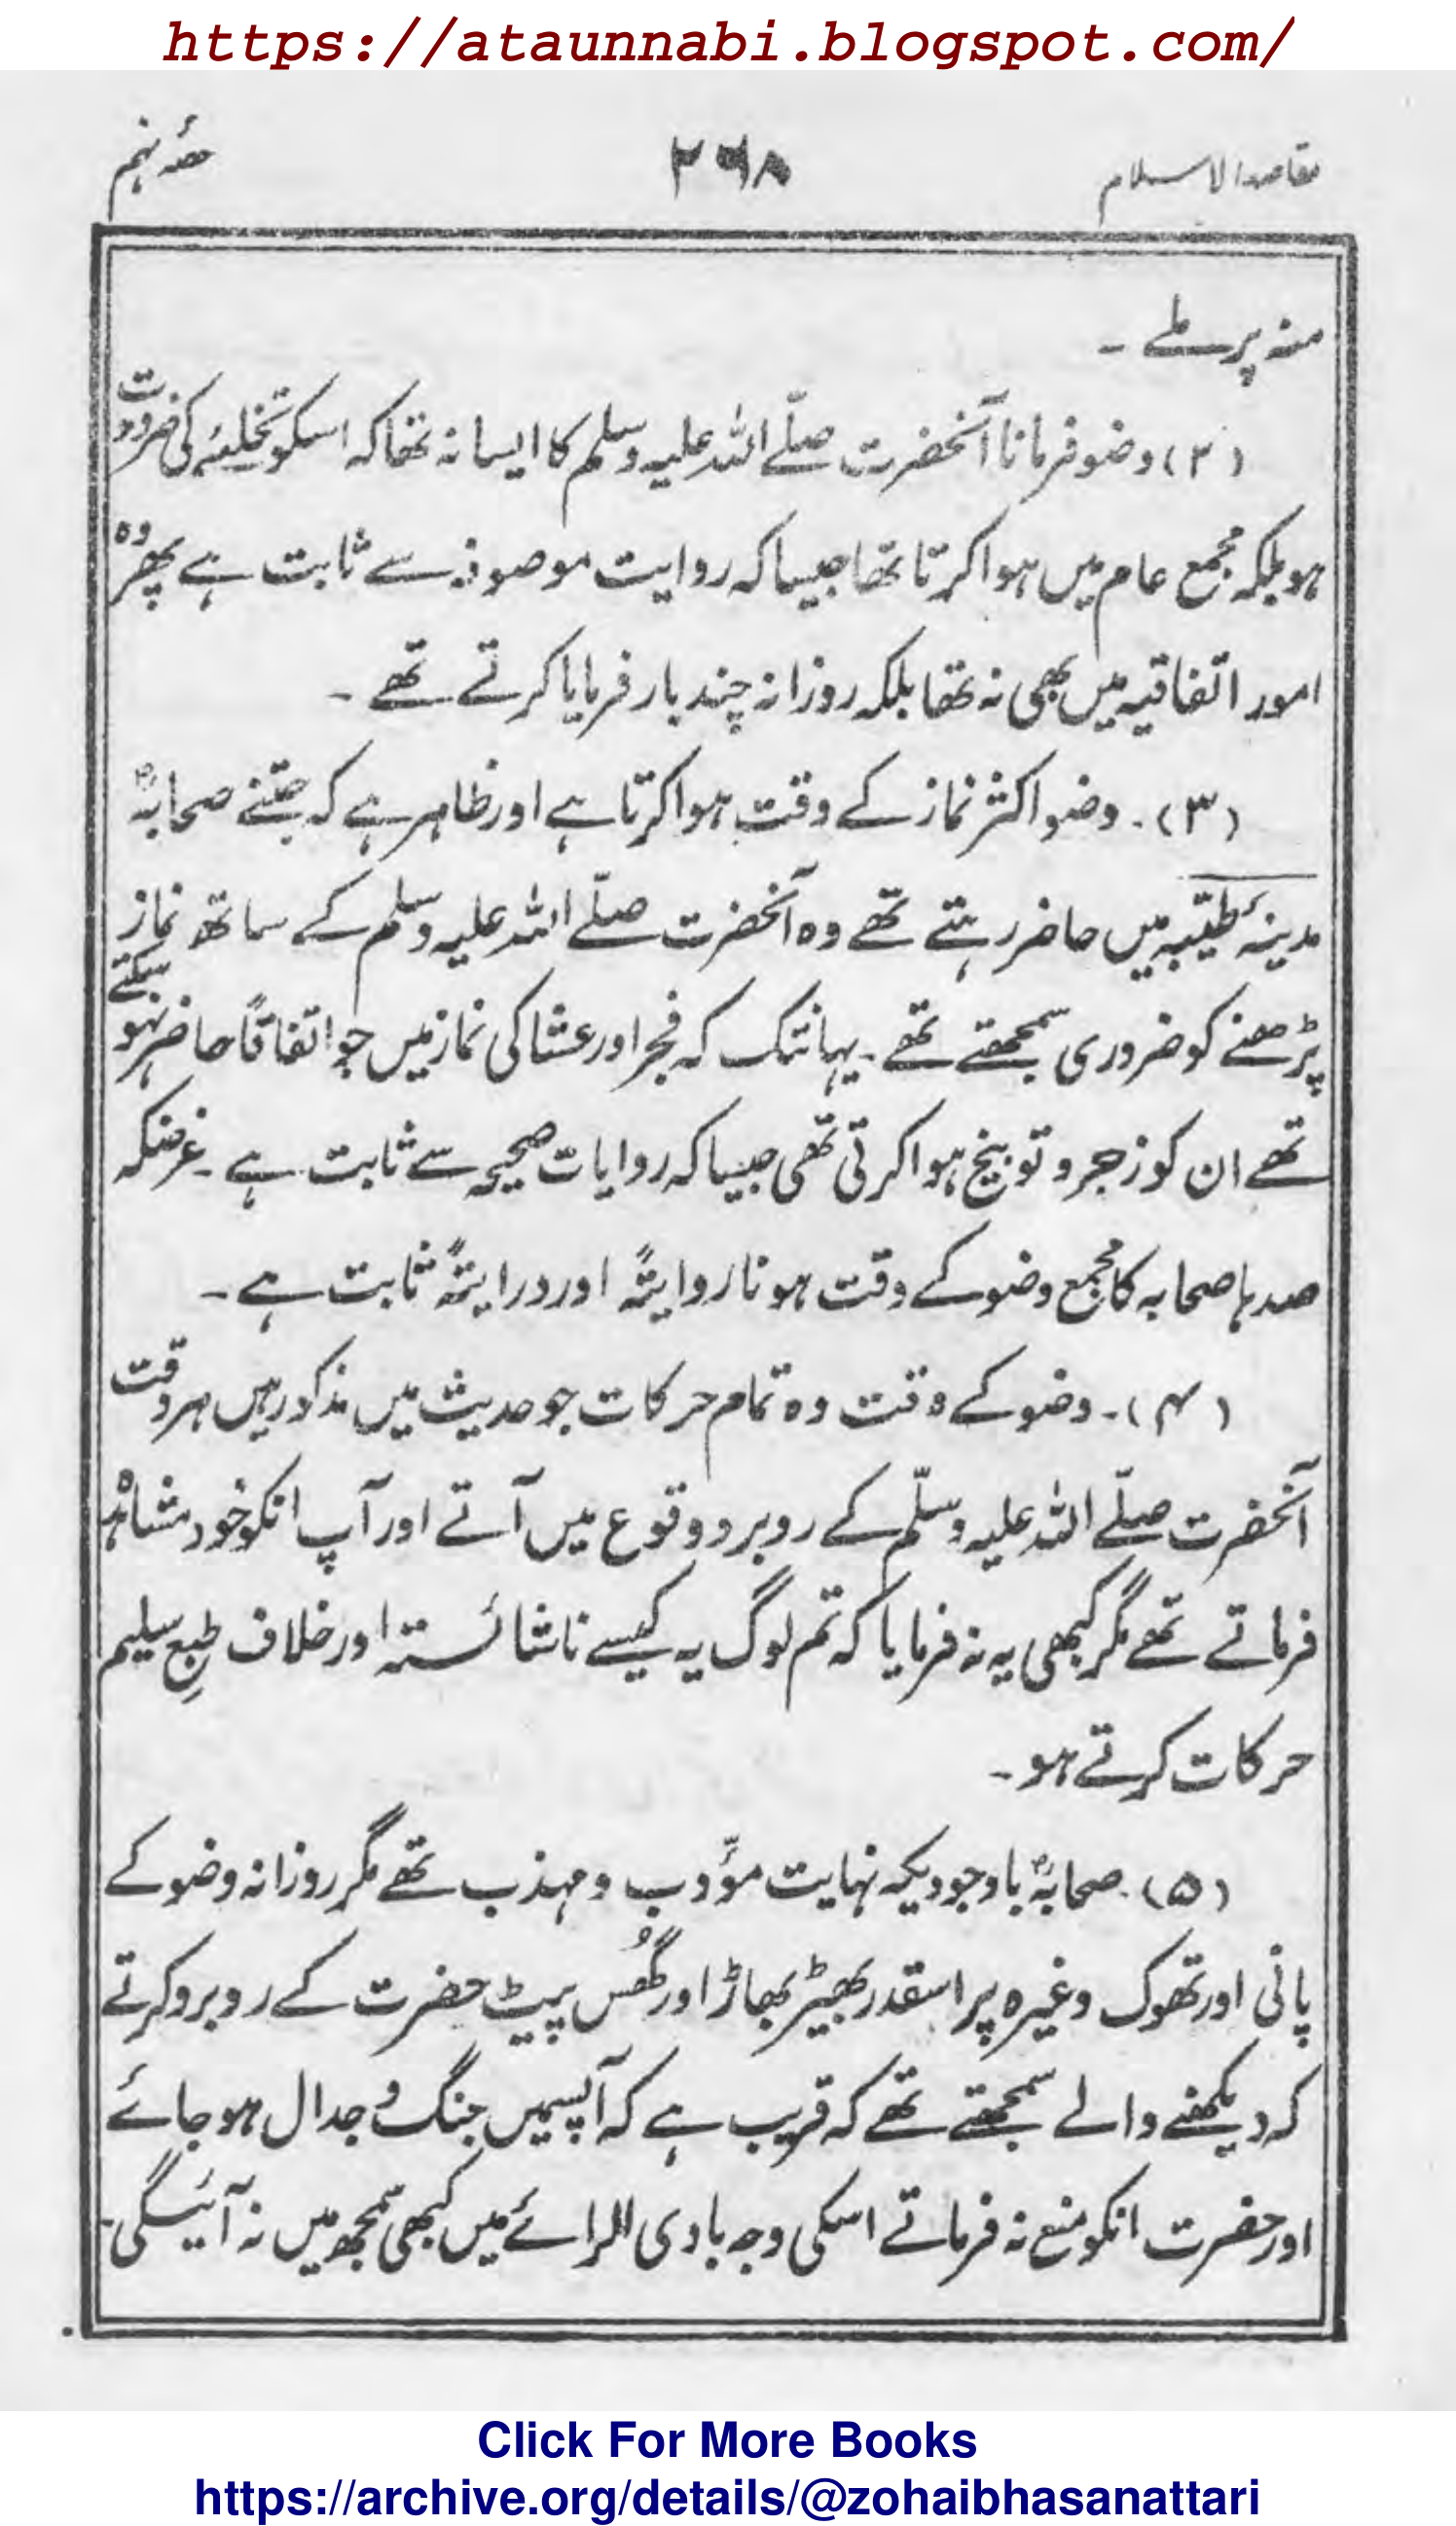 https://ataunnabi.blogspot.com/
مقاصد الاسلام ۲۶۸ حصۂ نہم
منہ پر ملے ۔
(۲) وضو فرمانا آنحضرت صلّے اللہ علیہ وسلم کا ایسا نہ تھا کہ اسکو تخلئہ کی ضرورت
ہو بلکہ مجمع عام میں ہوا کرتا تھا جیسا کہ روایت موصوفہ سے ثابت ہے پھر وہ
امور اتفاقیہ میں بھی نہ تھا بلکہ روزانہ چند بار فرمایا کرتے تھے ۔
(۳) ۔ وضو اکثر نماز کے وقت ہوا کرتا ہے اور ظاہر ہے کہ جتنے صحابہؓ
مدینۂ طیّبہ میں حاضر رہتے تھے وہ آنحضرت صلّے اللہ علیہ وسلم کے ساتھ نماز
پڑھنے کو ضروری سمجھتے تھے ۔ یہانتک کہ فجر اور عشا کی نماز میں جو اتفاقاً حاضر نہو سکتے
تھے ان کو زجر و توبیخ ہوا کرتی تھی جیسا کہ روایات صحیحہ سے ثابت ہے ۔ غرضکہ
صدہا صحابہ کا مجمع وضو کے وقت ہونا روایتہً اور درایتہً ثابت ہے ۔
(۴) ۔ وضو کے وقت وہ تمام حرکات جو حدیث میں مذکور ہیں ہر وقت
آنحضرت صلّے اللہ علیہ وسلّم کے روبرو وقوع میں آتے اور آپ انکو خود مشاہدہ
فرماتے تھے مگر کبھی یہ نہ فرمایا کہ تم لوگ یہ کیسے ناشائستہ اور خلاف طبعِ سلیم
حرکات کرتے ہو ۔
(۵) ۔ صحابہؓ باوجودیکہ نہایت مؤدب و مہذب تھے مگر روزانہ وضو کے
پانی اور تھوک وغیرہ پر اسقدر بھیڑ بھاڑ اور گھُس پیٹ حضرت کے روبرو کرتے
کہ دیکھنے والے سمجھتے تھے کہ قریب ہے کہ آپسمیں جنگ و جدال ہو جائے
اور حضرت انکو منع نہ فرماتے اسکی وجہ بادی الرائے میں کبھی سمجھ میں نہ آئیگی ۔
Click For More Books
https://archive.org/details/@zohaibhasanattari